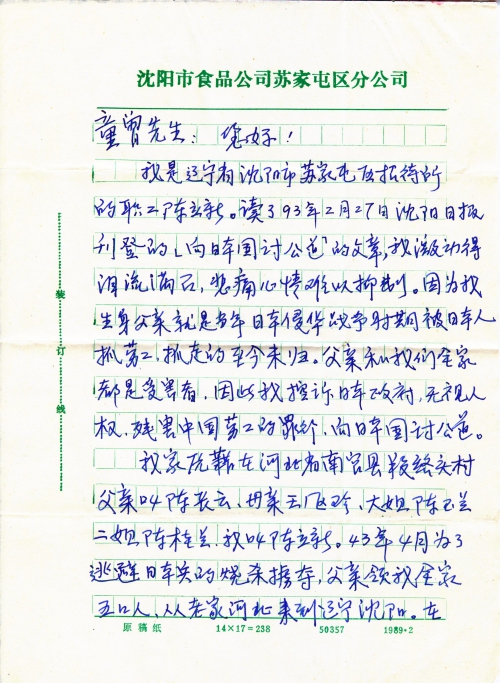 沈阳市食品公司苏家屯区分公司
童曾先生：您好！
我是辽宁省沈阳市苏家屯区招待所
的职工陈立新。读了93年2月27日沈阳日报
刊登的「向日本国讨公道」的文章，我激动得
泪流满面，悲痛心情难以抑制。因为我
生身父亲就是当年日本侵华战争时期被日本人
抓劳工，抓走的至今未归。父亲和我们全家
都是受害者，因此我控诉日本政府，无视人
权、残害中国劳工的罪行，向日本国讨公道。
我家原籍在河北省南宫县段绐头村
父亲叫陈长云，母亲王，大姐陈玉兰
二姐陈桂兰，我叫陈立新。43年4月为了
逃避日本兵的烧杀掳夺，父亲领我全家
五口人，从老家河北来到辽宁沈阳。在
装订线
原稿纸 14×17=238 50357 1989·2